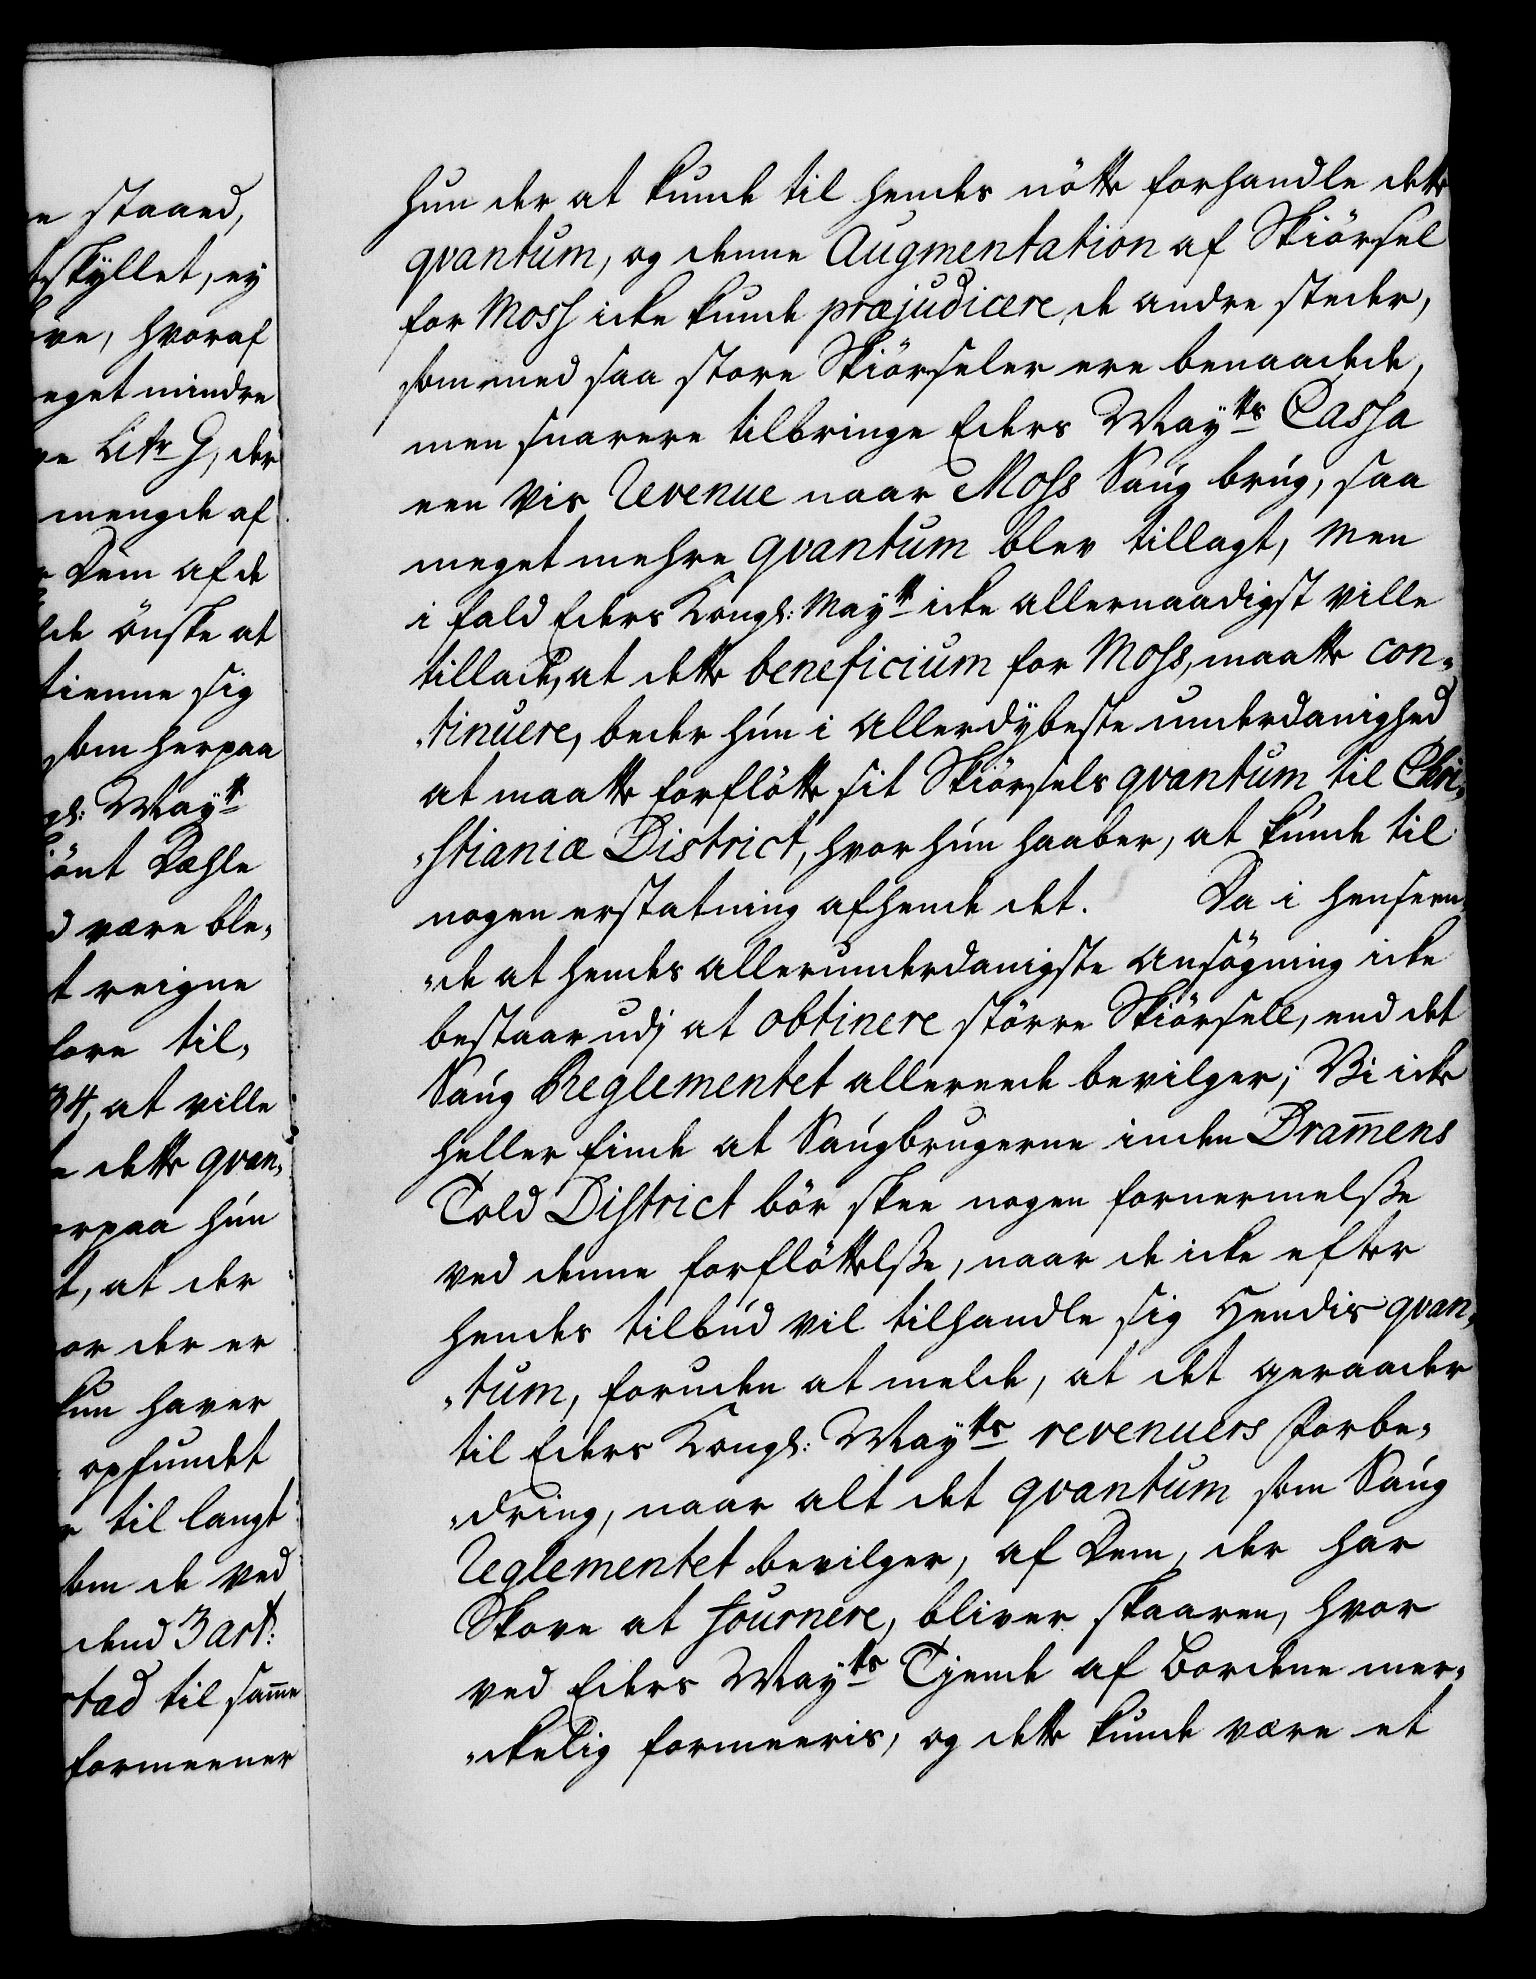 e staaed,
tskyllet, ej
ve, hvoraf
eget mindre
ve Litr G, der
mengde af
Dem af de
de önske at
tienne sig
som herpaa
gl: Maytt
önt Dæhle
d være ble,
t reigne
fore til,
34, at ville
e dette qvan,
erpaa hún
t, at der
or der er
kun haver
opfundet
r til langt
som de ved
dend 3 art:
tad til sam̅e
formeener
hun der at kunde til hendes nötte forhandle dette
qvantum, og denne Augmentation af Skiörsel
for Moss icke kunde præjudicere, de andre steder,
som med saa store Skiörseler ere benaadede,
men snarere tilbringe Eders Maytts Cassa
een vis Revenue naar Moss Saúg brúg, saa
meget mehre qvantum blev tillagt, Men
i fald Eders Kongl: Maytt icke allernaadigst ville
tillade, at dette beneficium for Moss, maatte con„
„tinuere, beder hún i allerdÿbeste underdanighed
at maatte forflötte sit Skiörsels qvantum til Chri„
„stianiæ District, hvor hún haaber, at kúnde til
nogen erstatning afhende det. Da i henseen„
„de at hendes allerunderdanigste Ansögning icke
bestaar udj at obtinere större Skiörsell, end det
Saúg Reglementet allereede bevilger; Vi icke
heller finde at Saúgbrugerne inden Dram̅ens
Told District bör skee nogen fornermelsse
ved denne forflöttelsse, naar de icke efter
hendes tilbúd vil tilhandle sig Hendis qvan„
„tum, foruden at melde, at det geraader
til Eders Kongl: Maytts revenuers forbe„
„dring, naar alt det qvantum som Saúg
Reglementet bevilger, af Dem, der har
Skove at fournere, bliver skaaren, hvor
ved Eders Maytts Tjende af Bordene mer„
„ckelig formeeris, og dette kunde være et